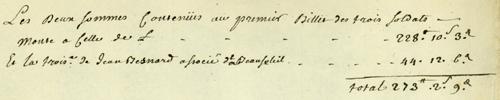 Les Deux Sommes Contenües au premier Billet des trois Soldats —
Monte a Celle de £ - - - 228# 10s 3d
Et la trois.e de Jean Besnard associé Beausoleil - - 44. 12. 6d
Total 273# 2s 9d